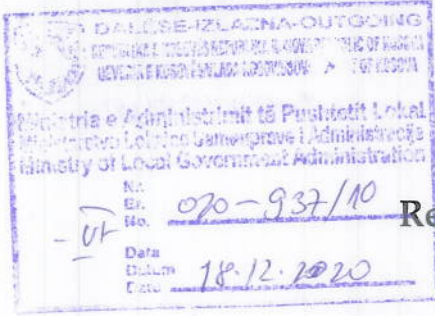 DALËSE-IZLAZNA-OUTGOING
Ministria e Administrimit të Pushtetit Lokal
Ministarstvo Lokalne Samouprave i Administracije
Ministry of Local Government Administration
Nr.
Br.
No. 020-937/10
-VI-
Re
Data
Datum
Date 18.12.2020